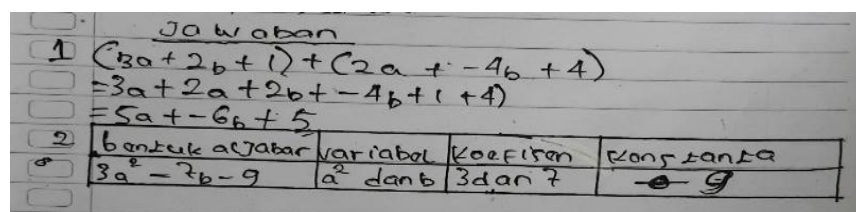 Jawaban
1 (3a + 2b + 1) + (2a + -4b + 4)
= 3a + 2a + 2b + -4b + 1 + 4)
= 5a + -6b + 5
2 bentuk aljabar variabel koefisen konstanta
3a² - 7b - 9 a² dan b 3 dan 7 - 9